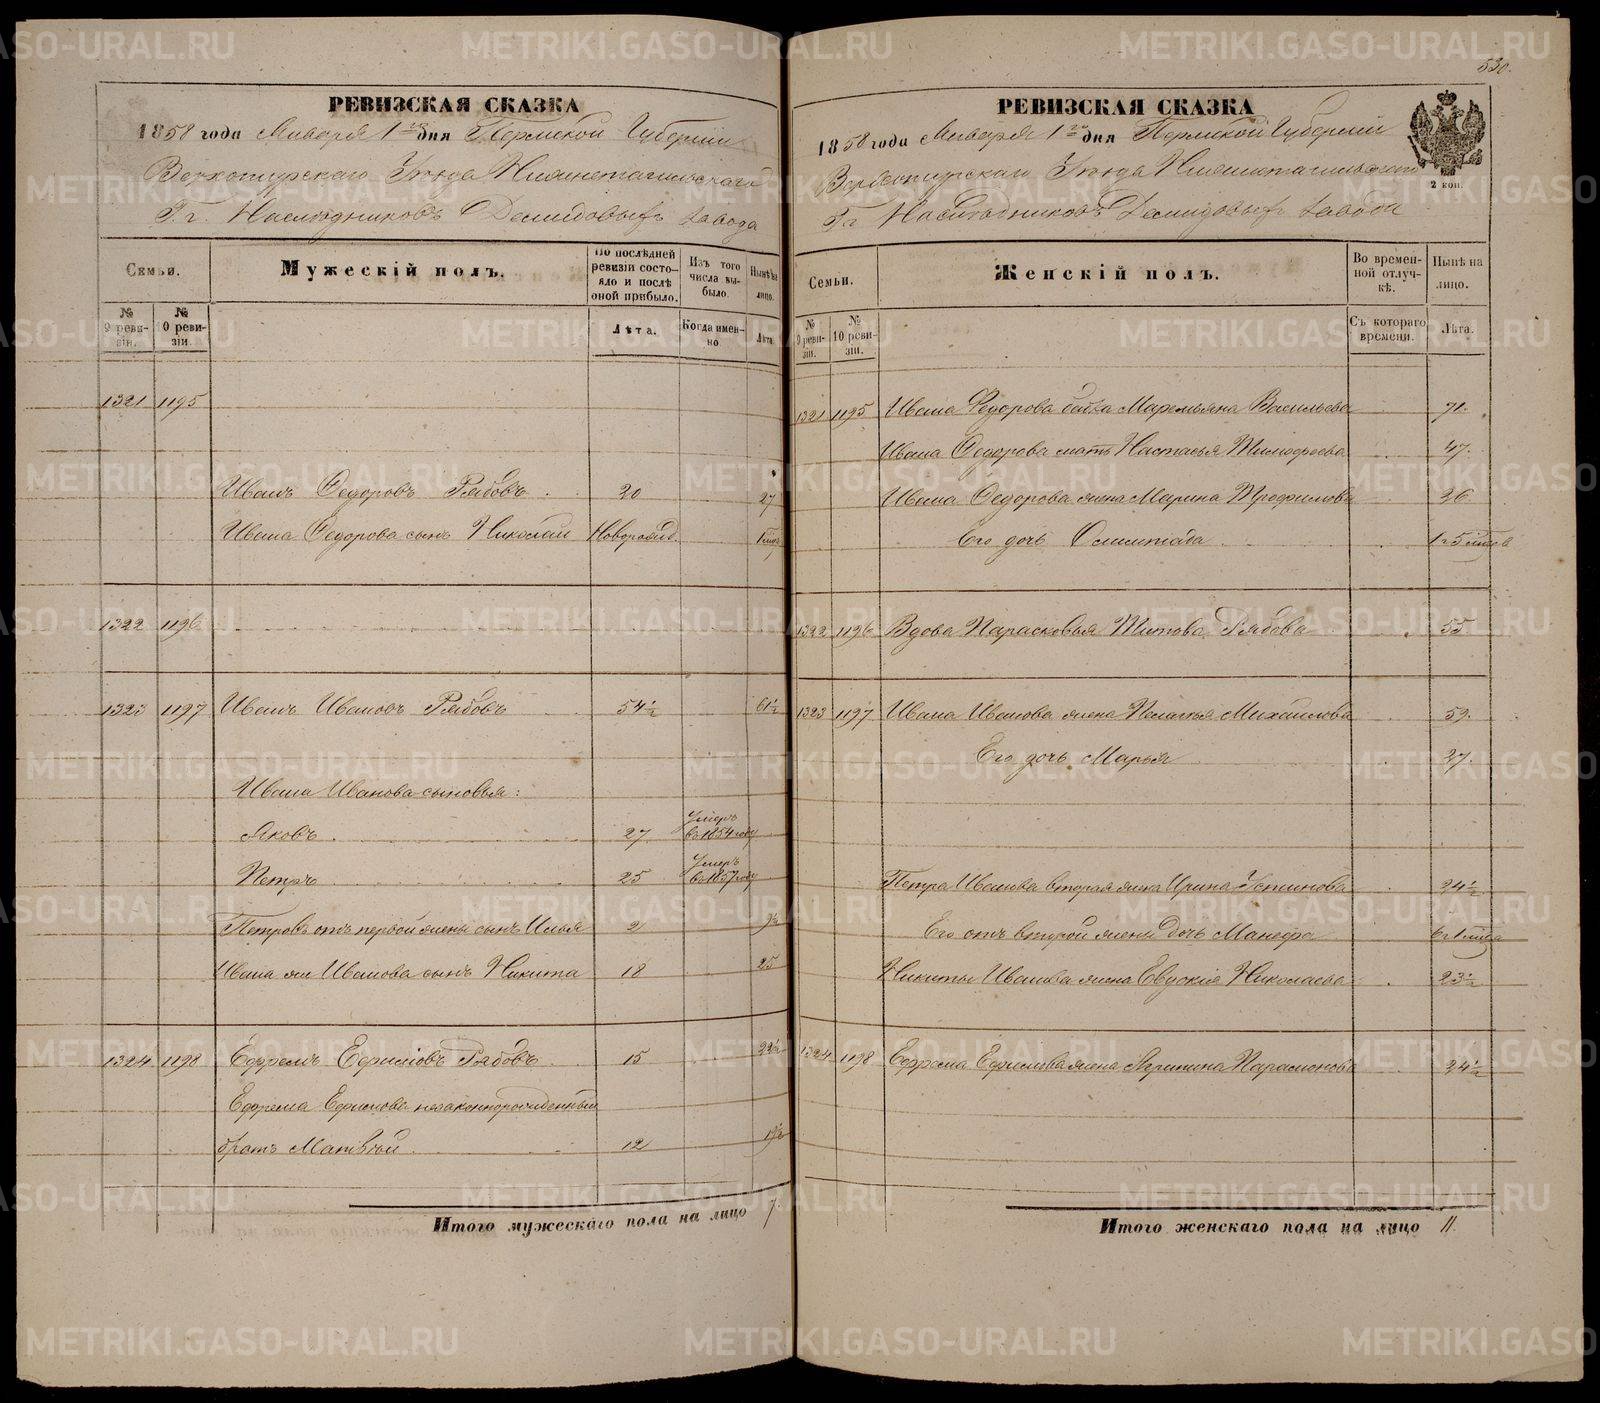 530.
РЕВИЗСКАЯ СКАЗКА
1858 года Января 1го дня Пермской Губерніи
Верхотурскаго Уѣзда Нижнетагильскаго
Гг. Наслѣдниковъ Демидовыхъ завода
Семьи.
Мужескій полъ.
По послѣдней ревизіи состояло и послѣ оной прибыло.
Изъ того числа выбыло.
Нынѣ на лицо.
№ 9 ревизіи.
№ 10 ревизіи.
Лѣта.
Когда именно
Лѣта.
1321 1195
Иванъ Ѳедоровъ Рябовъ 20 27
Ивана Ѳедорова сынъ Николай Новорожд.
1322 1196
1323 1197 Иванъ Ивановъ Рябовъ 54½ 61½
Ивана Иванова сыновья:
Яковъ 27 Умеръ въ 1854 году
Петръ 25 Умеръ въ 1857 году
Петровъ отъ первой жены сынъ Илья 2 9½
Ивана же Иванова сынъ Никита 18 25
1324 1198 Ефремъ Ефимовъ Рябовъ 15 22½
Ефрема Ефимова незаконнорожденный
братъ Матвѣй 12 19½
Итого мужескаго пола на лицо 7.
РЕВИЗСКАЯ СКАЗКА
1858 года Января 1го дня Пермской Губерніи
Верхотурскаго Уѣзда Нижнетагильскаго
Гг. Наслѣдниковъ Демидовыхъ завода
2 коп.
Семьи.
Женскій полъ.
Во временной отлучкѣ.
Нынѣ на лицо.
№ 9 ревизіи.
№ 10 ревизіи.
Съ котораго времени.
Лѣта.
1321 1195 Ивана Ѳедорова бабка Маремьяна Васильева 71.
Ивана Ѳедорова мать Настасья Тимофеева 47.
Ивана Ѳедорова жена Марина Трофимова 26
Его дочь Олимпіада
1322 1196 Вдова Парасковья Титова Рябова 55
1323 1197 Ивана Иванова жена Пелагея Михайлова 59.
Его дочь Марья 27.
Петра Иванова вторая жена Ирина Устинова 24½
Его отъ второй жены дочь Манефа
Никиты Иванова жена Евдокія Николаева 23½
1324 1198 Ефрема Ефимова жена Агрипина Парамонова 24½
Итого женскаго пола на лицо 11.
METRIKI.GASO-URAL.RU